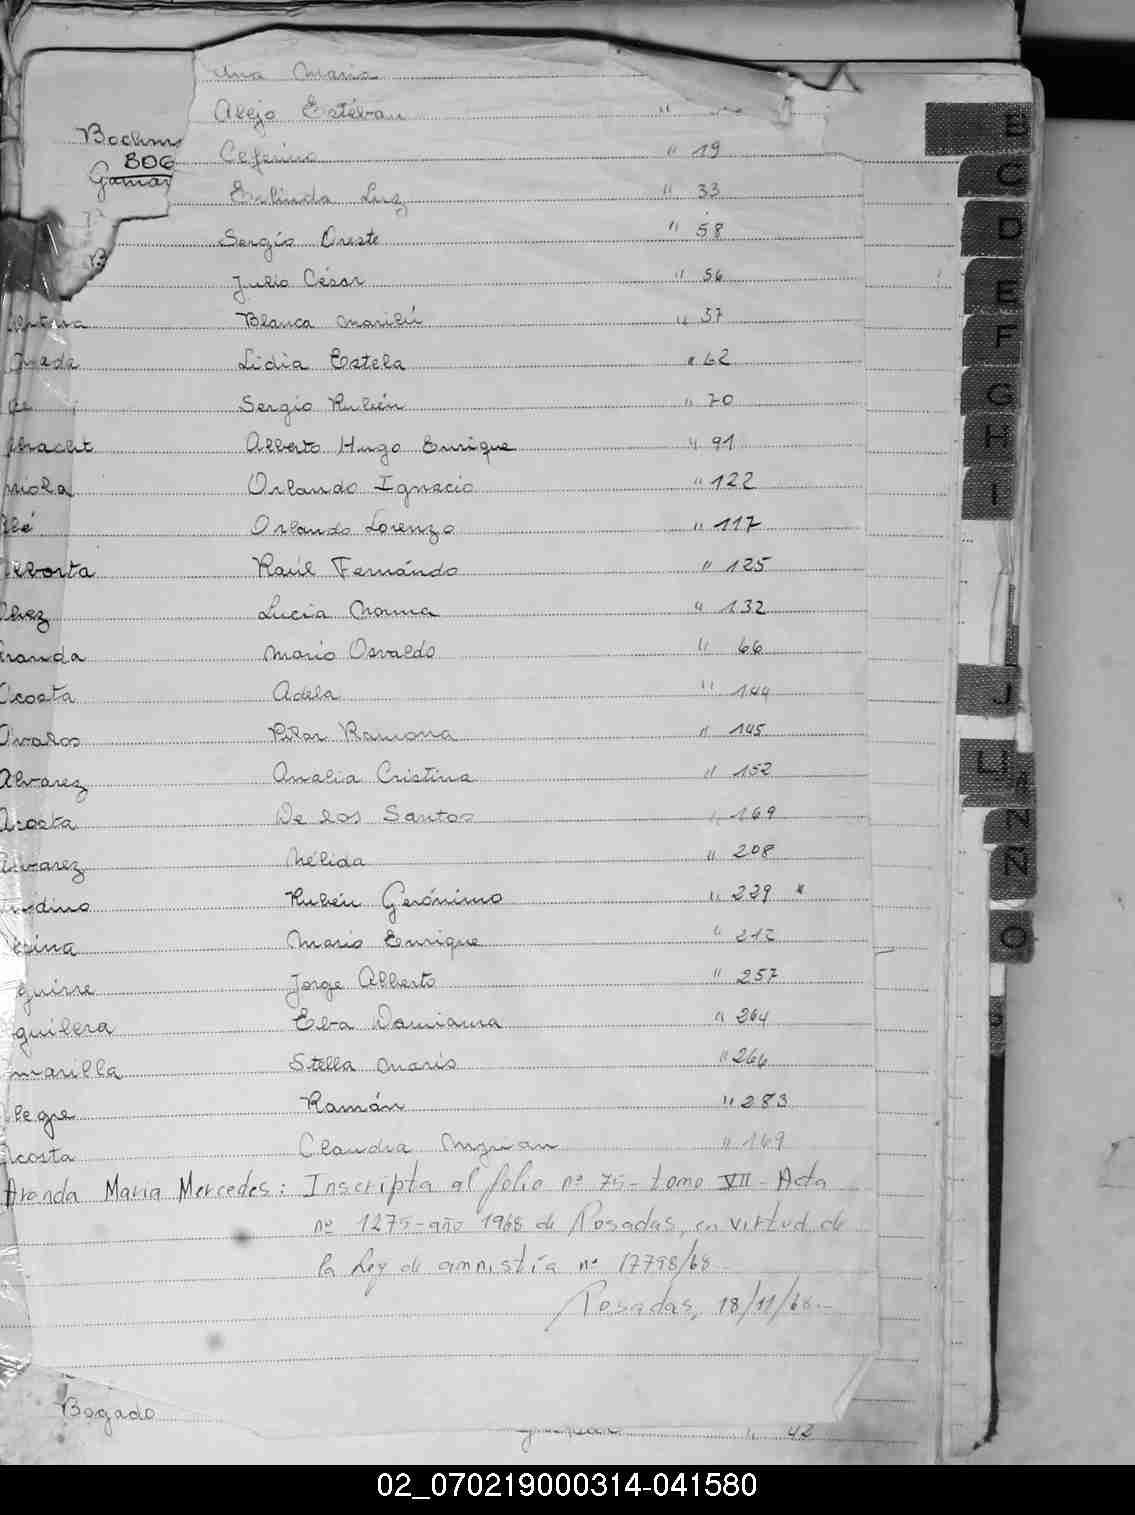 Ana Maria
Alejo Estéban "
Ceferino " 19
Erlinda Luz " 33
Sergio Oreste " 58
Julio César " 56
Blanca Marilú " 37
Lidia Estela " 62
Sergio Rubén " 70
Alberto Hugo Enrique " 91
Orlando Ignacio " 122
Orlando Lorenzo " 117
Raúl Fernándo " 125
Lucia Norma " 132
Mario Osvaldo " 66
Acosta Adela " 144
Avalos Pilar Ramona " 145
Alvarez Analia Cristina " 152
Acosta De los Santos " 169
Alvarez Nélida " 208
Rubén Gerónimo " 229 *
Mario Enrique "
guirre Jorge Alberto " 257
guilera Elva Damiana " 264
marilla Stella Maris " 266
legre Ramán " 283
Acosta Claudia " 169
Aranda Maria Mercedes: Inscripta al folio nº 75 - tomo VII - Acta
nº 1275 - año 1968 de Posadas, en virtud de
la Ley de amnistía nº 17798/68
Posadas, 18/11/68.-
Bogado " 42
BOG
B
C
D
E
F
G
H
I
J
LL
N
Ñ
O
02_070219000314-041580